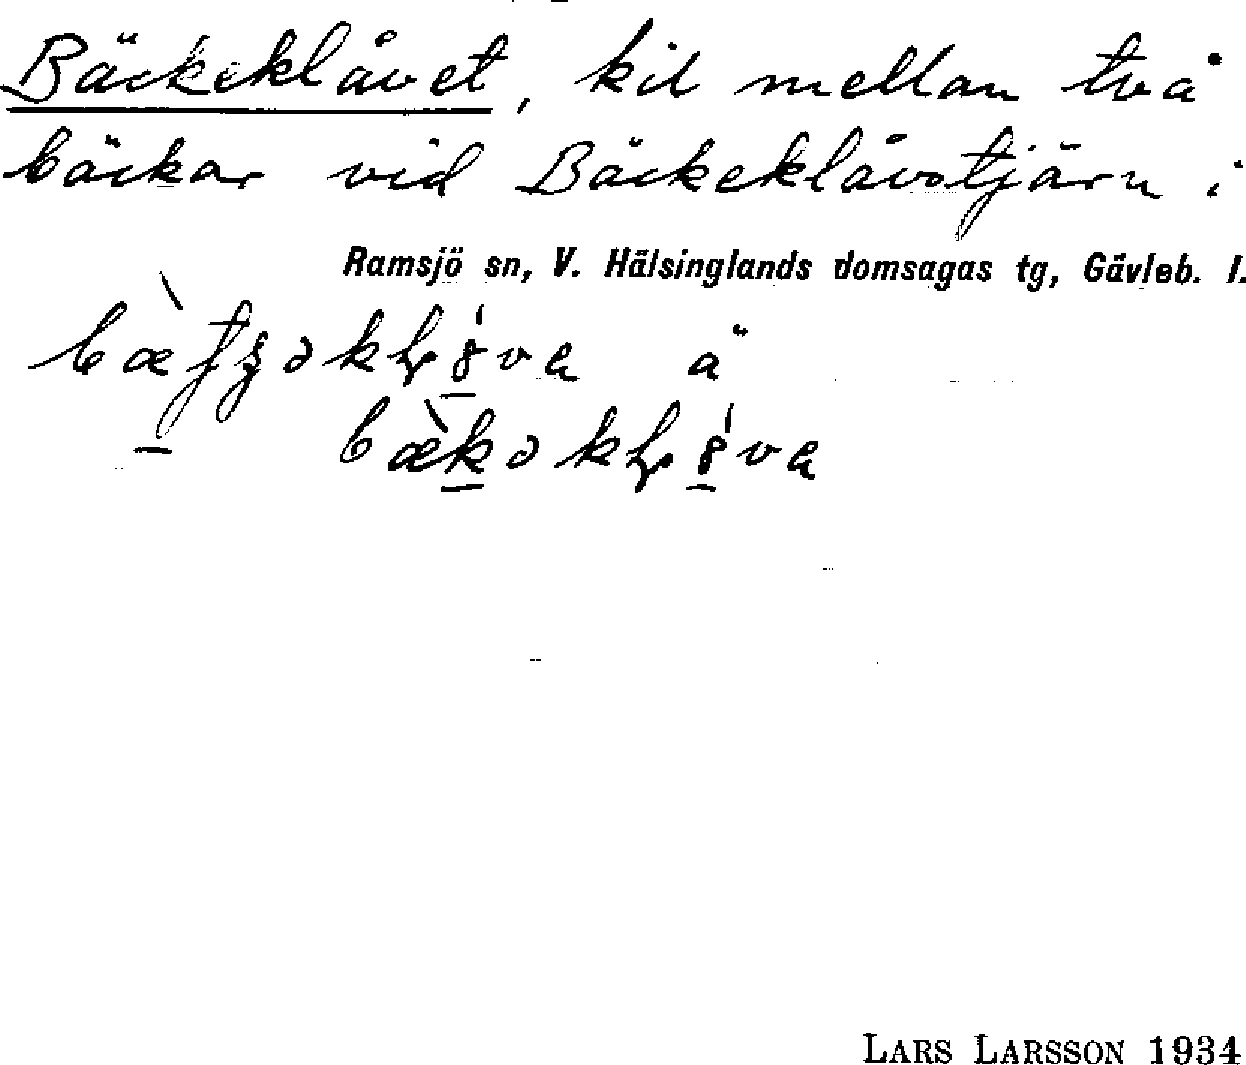 Bäckeklåvet, kil mellan två
bäckar vid Bäckeklåvstjärn i
Ramsjö sn, V. Hälsinglands domsagas tg, Gävleb. l.
ä
LARS LARSSON 1934